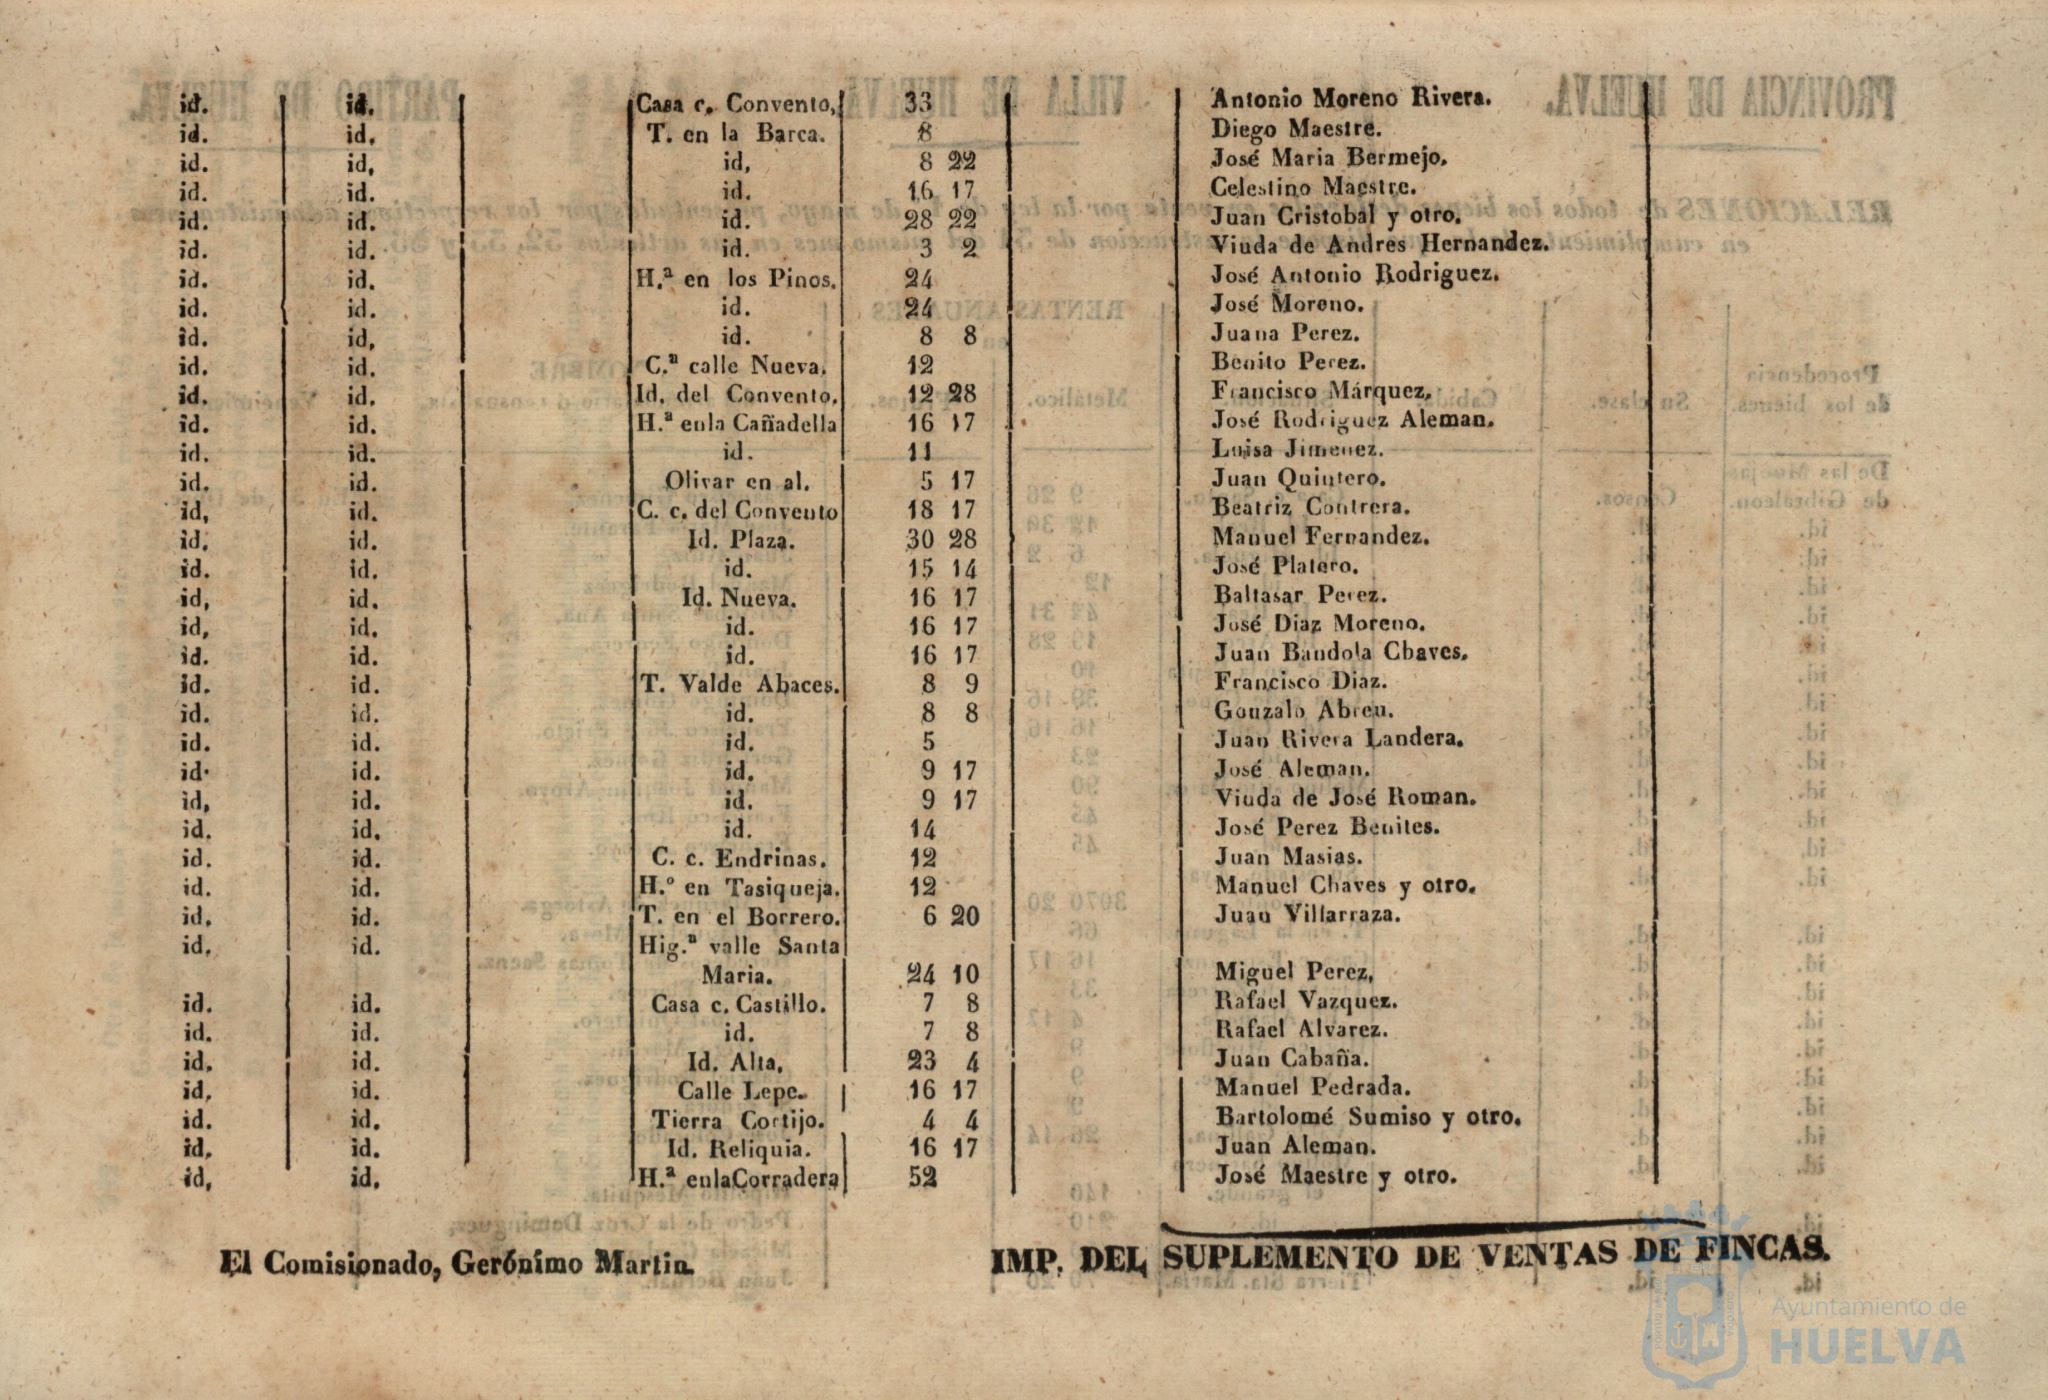 id. id. Casa c. Convento, 33 Antonio Moreno Rivera.
id. id, T. en la Barca. 8 Diego Maestre.
id. id, id, 8 22 José Maria Bermejo.
id. id. id. 16 17 Celestino Maestre.
id. id. id. 28 22 Juan Cristobal y otro.
id. id. id. 3 2 Viuda de Andres Hernandez.
id. id. H.ª en los Pinos. 24 José Antonio Rodriguez.
id. id. id. 24 José Moreno.
id. id, id. 8 8 Juana Perez.
id. id. C.ª calle Nueva. 12 Benito Perez.
id. id. Id. del Convento. 12 28 Francisco Márquez.
id. id. H.ª enla Cañadella 16 17 José Rodriguez Aleman.
id. id. id. 11 Luisa Jimenez.
id. id. Olivar en al. 5 17 Juan Quintero.
id, id. C. c. del Convento 18 17 Beatriz Contrera.
id. id. Id. Plaza. 30 28 Manuel Fernandez.
id. id. id. 15 14 José Platero.
id, id. Id. Nueva. 16 17 Baltasar Perez.
id, id. id. 16 17 José Diaz Moreno.
id. id. id. 16 17 Juan Bandola Chaves.
id. id. T. Valde Abaces. 8 9 Francisco Diaz.
id. id. id. 8 8 Gonzalo Abreu.
id. id. id. 5 Juan Rivera Landera.
id. id. id. 9 17 José Aleman.
id, id. id. 9 17 Viuda de José Roman.
id. id. id. 14 José Perez Benites.
id. id. C. c. Endrinas. 12 Juan Masias.
id. id. H.º en Tasiqueja. 12 Manuel Chaves y otro.
id, id. T. en el Borrero. 6 20 Juan Villarraza.
id, id. Hig.ª valle Santa
Maria. 24 10 Miguel Perez,
id. id. Casa c. Castillo. 7 8 Rafael Vazquez.
id. id. id. 7 8 Rafael Alvarez.
id. id. Id. Alta, 23 4 Juan Cabaña.
id, id. Calle Lepe. 16 17 Manuel Pedrada.
id. id. Tierra Cortijo. 4 4 Bartolomé Sumiso y otro.
id, id. Id. Reliquia. 16 17 Juan Aleman.
id, id, H.ª enlaCorradera 52 José Maestre y otro.
El Comisionado, Gerónimo Martin. IMP. DEL SUPLEMENTO DE VENTAS DE FINCAS.
Ayuntamiento de
HUELVA